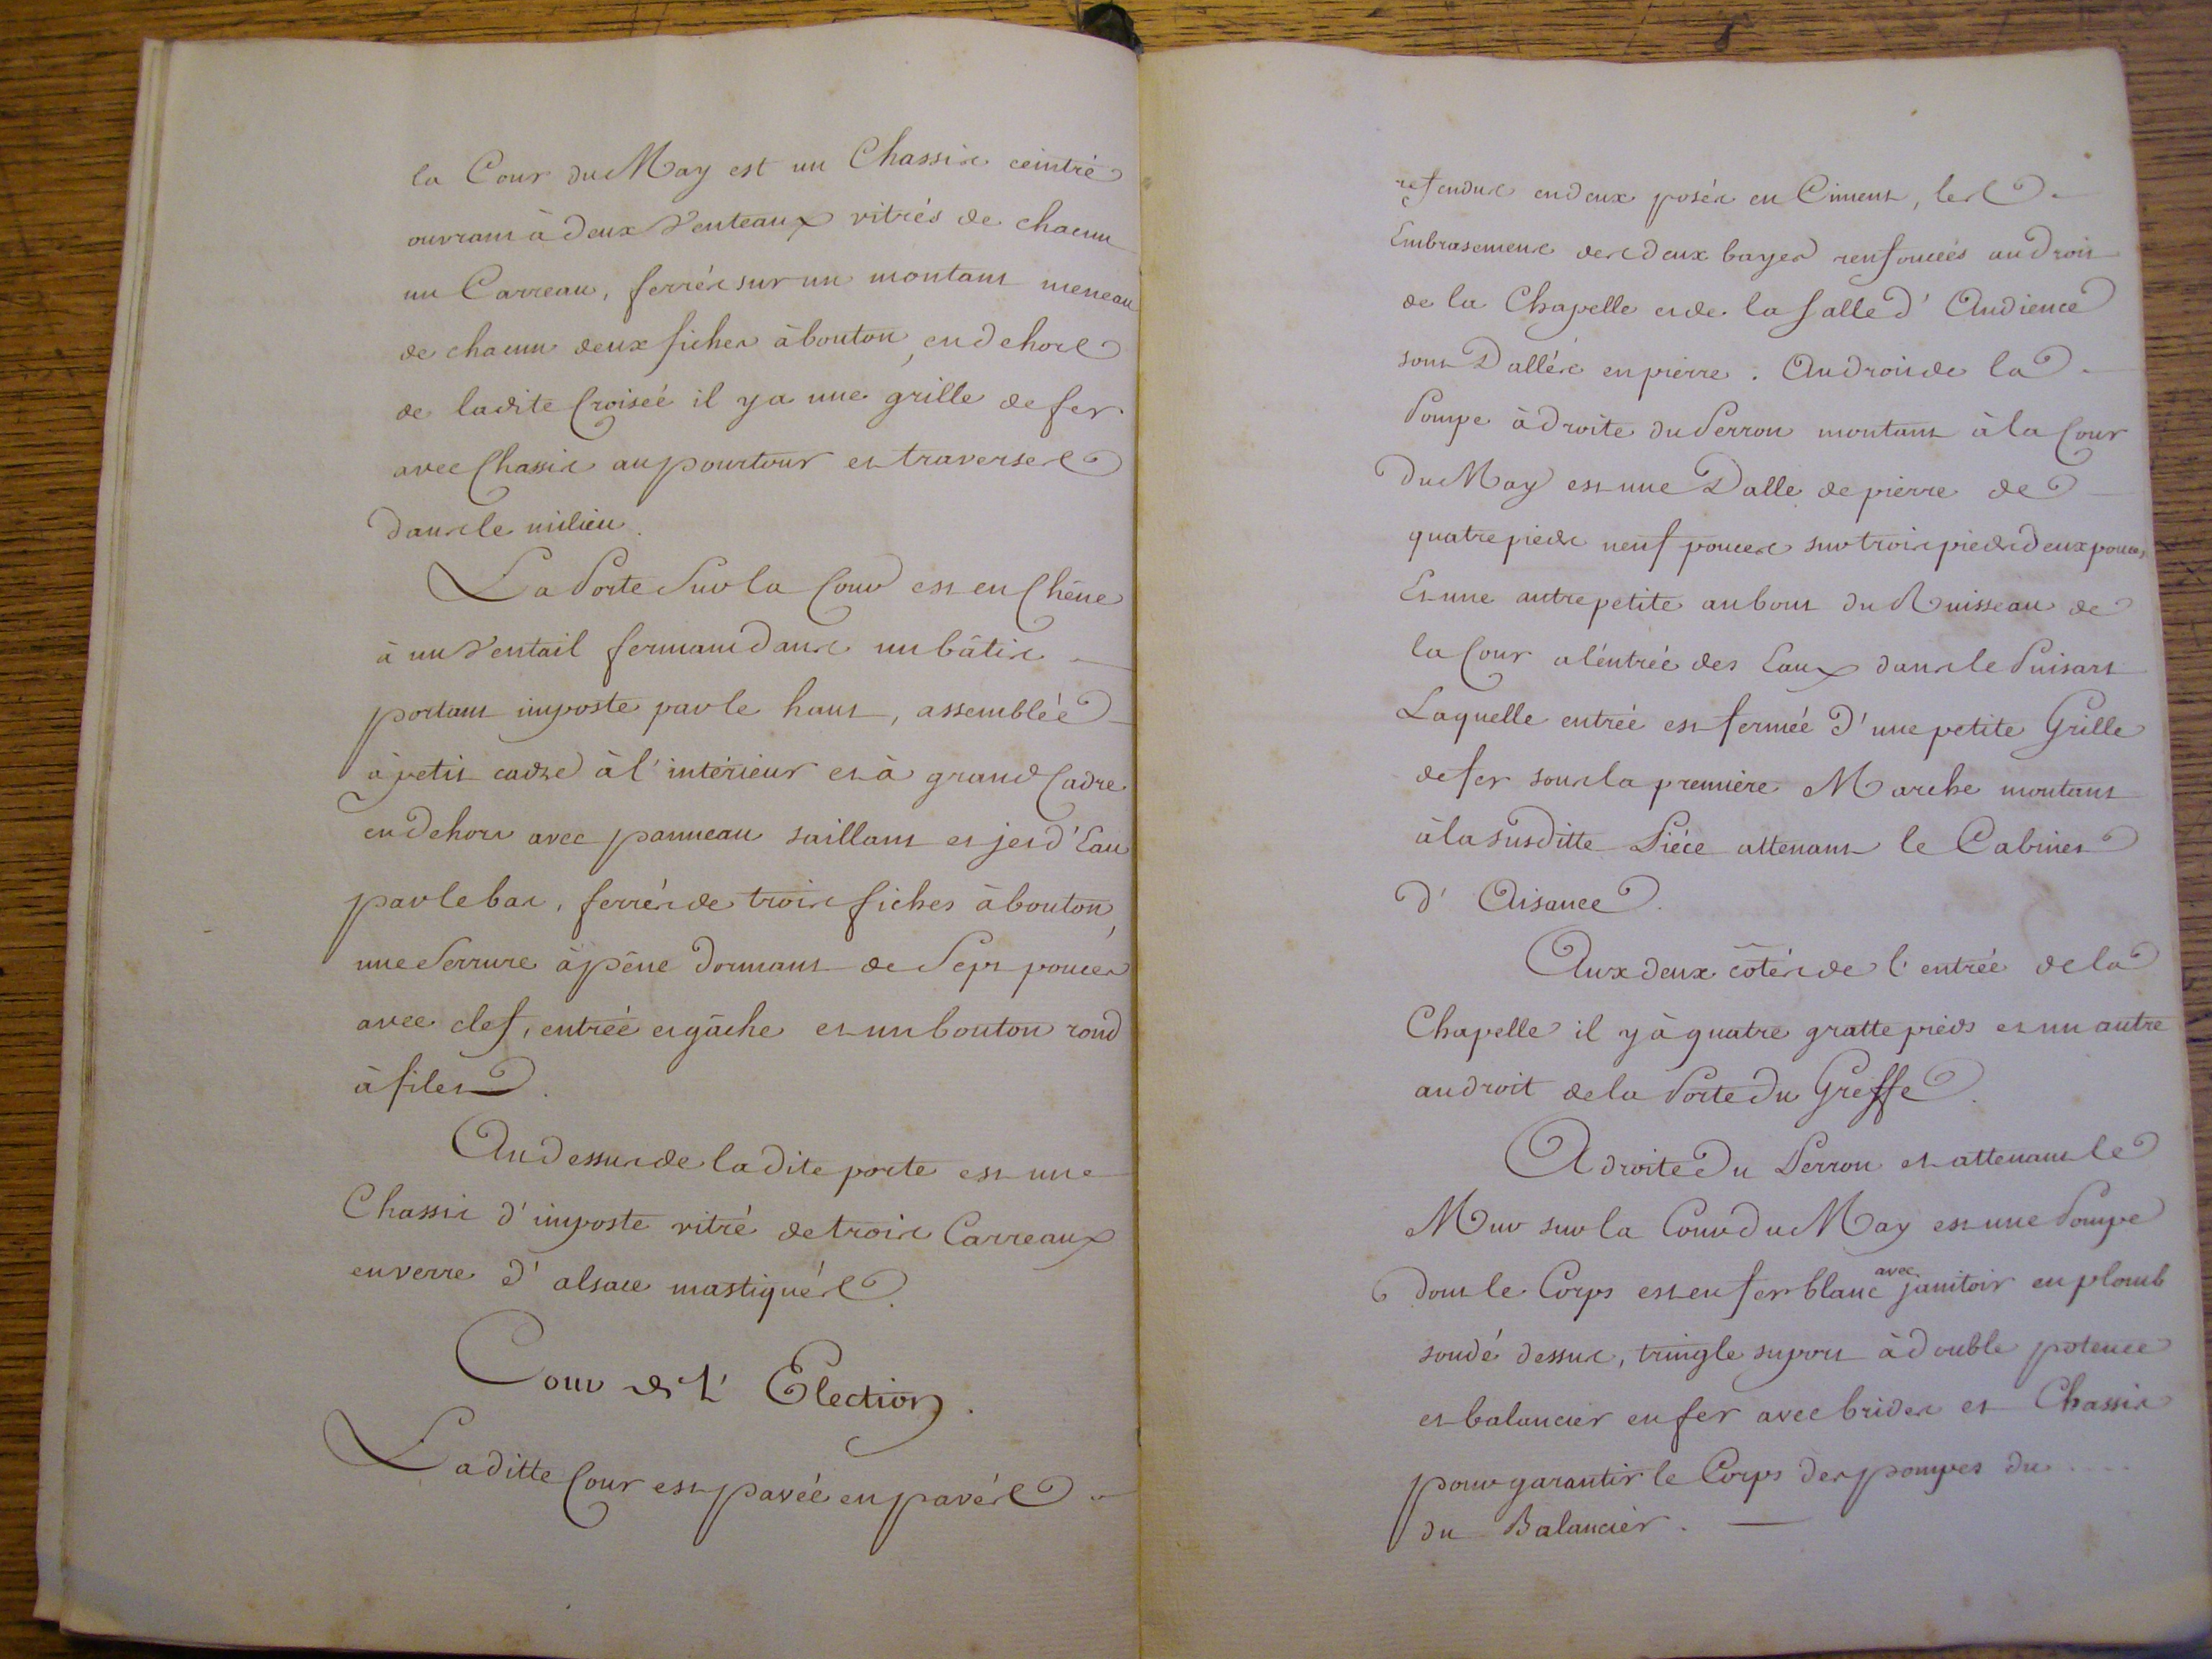 la Cour du May est un Chassis ceintré
ouvrant à deux Venteaux vitrés de chacun
un Carreau, ferrés sur un montant meneau
de chacun deux fiches à bouton, en dehors
de ladite Croisée il y a une grille de fer
avec Chassis au pourtour et traverses
dans le milieu.
La Porte Sur la Cour est en Chêne
à un Ventail fermant dans un bâtis
portant imposte par le haut, assemblée
à petit cadre à l'intérieur et à grand Cadre
en dehors avec panneau saillant et jet d'Eau
par le bas, ferrés de trois fiches à bouton,
une Serrure à pêne dormant de Sept pouces
avec clef, entrée et gâche et un bouton rond
à filet.
Au dessus de la dite porte est une
Chassis d'imposte vitré de trois Carreaux
en verre d'alsace mastiqués.
Cour de L'Election.
La ditte Cour est pavée en pavés
refendus en deux posés en Ciment, les
Embrasemens des deux bayes renfoncées au droit
de la Chapelle et de la Salle d'Audience
sont Dallés en pierre. Au droit de la
Pompe à droite du Perron montant à la Cour
du May est une Dalle de pierre de
quatre pieds neuf pouces sur trois pieds deux pouces,
Et une autre petite au bout du Ruisseau de
la Cour a l'éntrée des Eaux dans le Puisart
Laquelle entrée est fermée d'une petite Grille
de fer sous la première Marche montant
à la susditte Piéce attenant le Cabinet
d'Aisance.
Aux deux côtés de l'entrée de la
Chapelle il y à quatre gratte pieds et un autre
au droit de la Porte du Greffe.
A droite du Perron et attenant le
Mur sur la Cour du May est une Pompe
dont le Corps est en fer blanc avec jamitoir en plomb
soudé dessus, tringle suport à double potence
et balancier en fer avec brides et Chassis
pour garantir le Corps des pompes du ....
du Balancier.